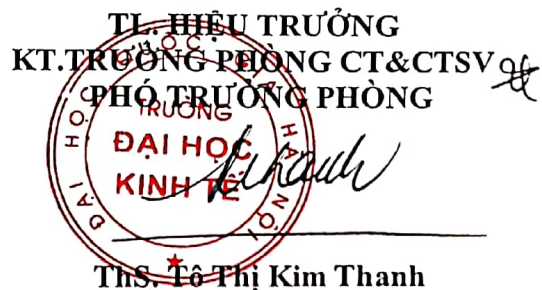 TL. HIỆU TRƯỞNG
KT.TRƯỞNG PHÒNG CT&CTSV
PHÓ TRƯỞNG PHÒNG
ĐẠI HỌC QUỐC GIA HÀ NỘI
TRƯỜNG
ĐẠI HỌC
KINH TẾ
ThS. Tô Thị Kim Thanh